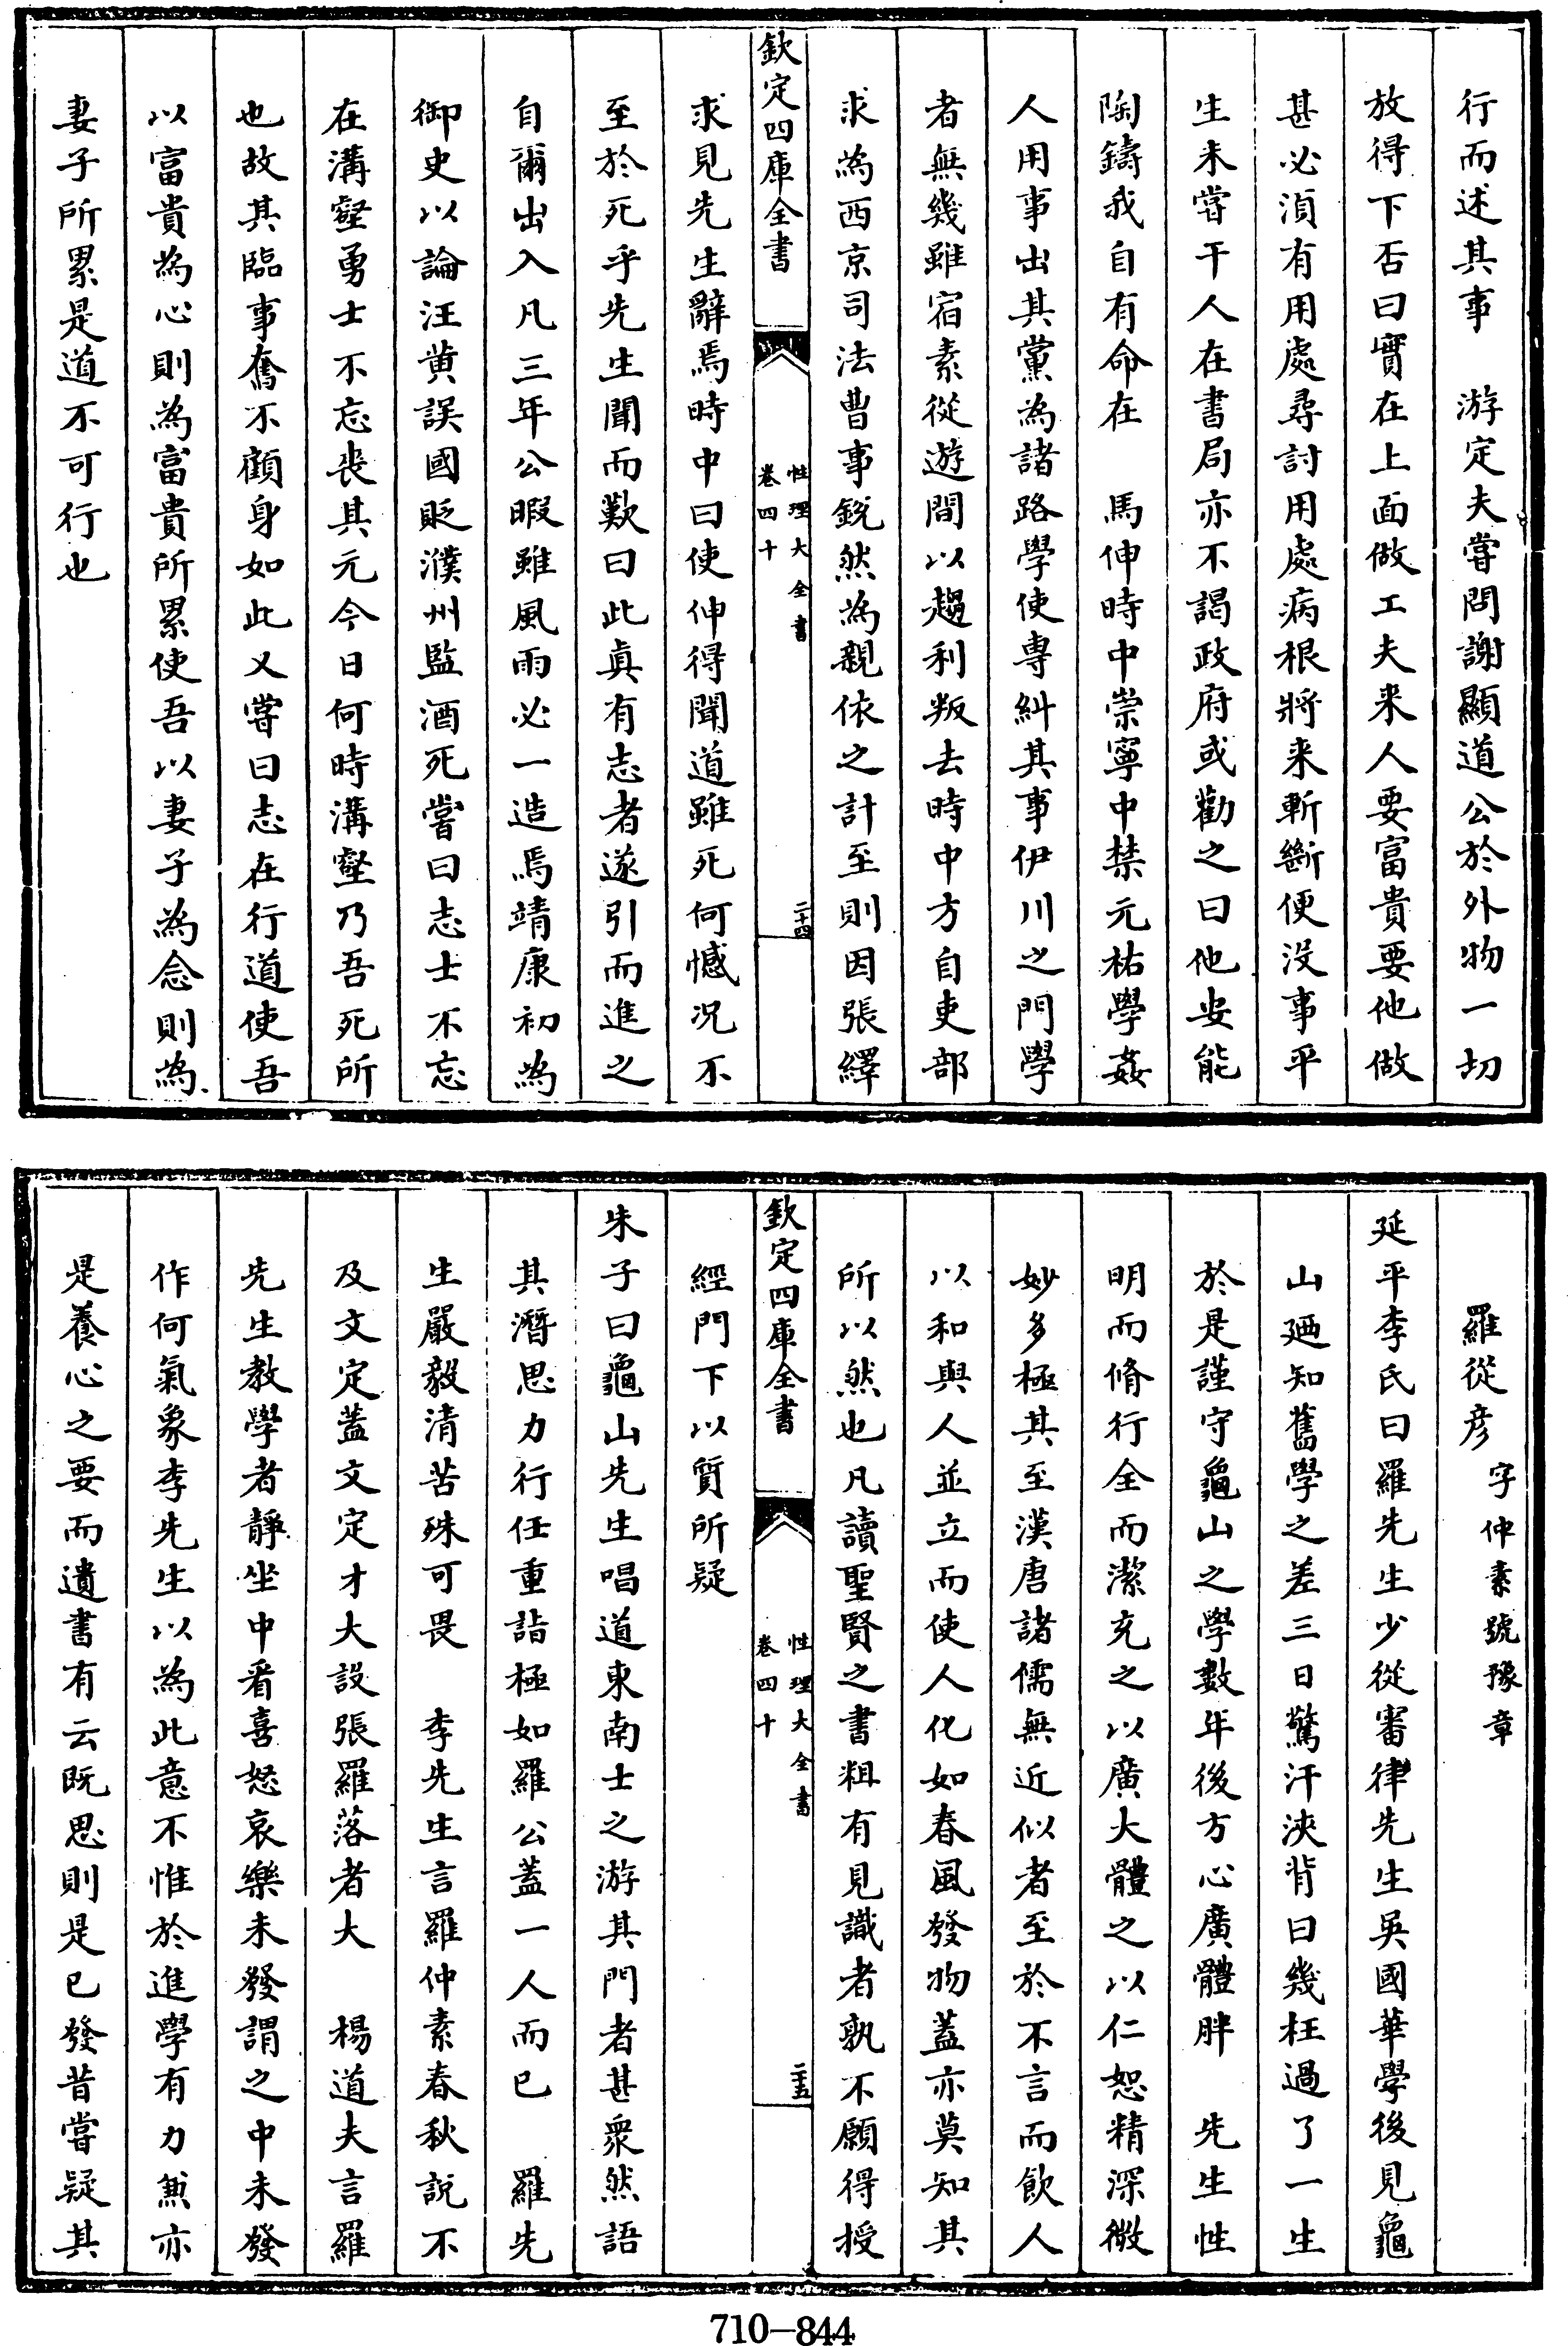 行而述其事　游定夫嘗問謝顯道公於外物一切
放得下否曰實在上面做工夫来人要富貴要他做
甚必湏有用處尋討用處病根將来斬斷便没事平
生未嘗干人在書局亦不謁政府或勸之曰他安能
陶鑄我自有命在　馬伸時中崇寧中禁元祐學姦
人用事出其黨為諸路學使専糾其事伊川之門學
者無幾雖宿素從遊間以趨利叛去時中方自吏部
求為西京司法曹事鋭然為親依之計至則因張繹
欽定四庫全書
性理大全書
卷四十
二十四
求見先生辭焉時中曰使伸得聞道雖死何憾况不
至於死乎先生聞而歎曰此真有志者遂引而進之
自爾出入凡三年公暇雖風雨必一造焉靖康初為
御史以論汪黄誤國貶濮州監酒死嘗曰志士不忘
在溝壑勇士不忘喪其元今日何時溝壑乃吾死所
也故其臨事奮不顧身如此又嘗曰志在行道使吾
以富貴為心則為富貴所累使吾以妻子為念則為
妻子所累是道不可行也
羅從彦字仲素號豫章
延平李氏曰羅先生少從審律先生吳國華學後見龜
山廼知舊學之差三日驚汗浹背曰幾枉過了一生
於是謹守龜山之學數年後方心廣體胖　先生性
明而脩行全而潔充之以廣大體之以仁恕精深微
妙多極其至漢唐諸儒無近似者至於不言而飲人
以和與人並立而使人化如春風發物蓋亦莫知其
所以然也凡讀聖賢之書粗有見識者孰不願得授
欽定四庫全書
性理大全書
卷四十
二十五
經門下以質所疑
朱子曰龜山先生唱道東南士之游其門者甚衆然語
其潛思力行任重詣極如羅公蓋一人而已　羅先
生嚴毅清苦殊可畏　李先生言羅仲素春秋説不
及文定蓋文定才大設張羅落者大　楊道夫言羅
先生教學者靜坐中看喜怒哀樂未發謂之中未發
作何氣象李先生以為此意不惟於進學有力兼亦
是養心之要而遺書有云既思則是已發昔嘗疑其
710-844